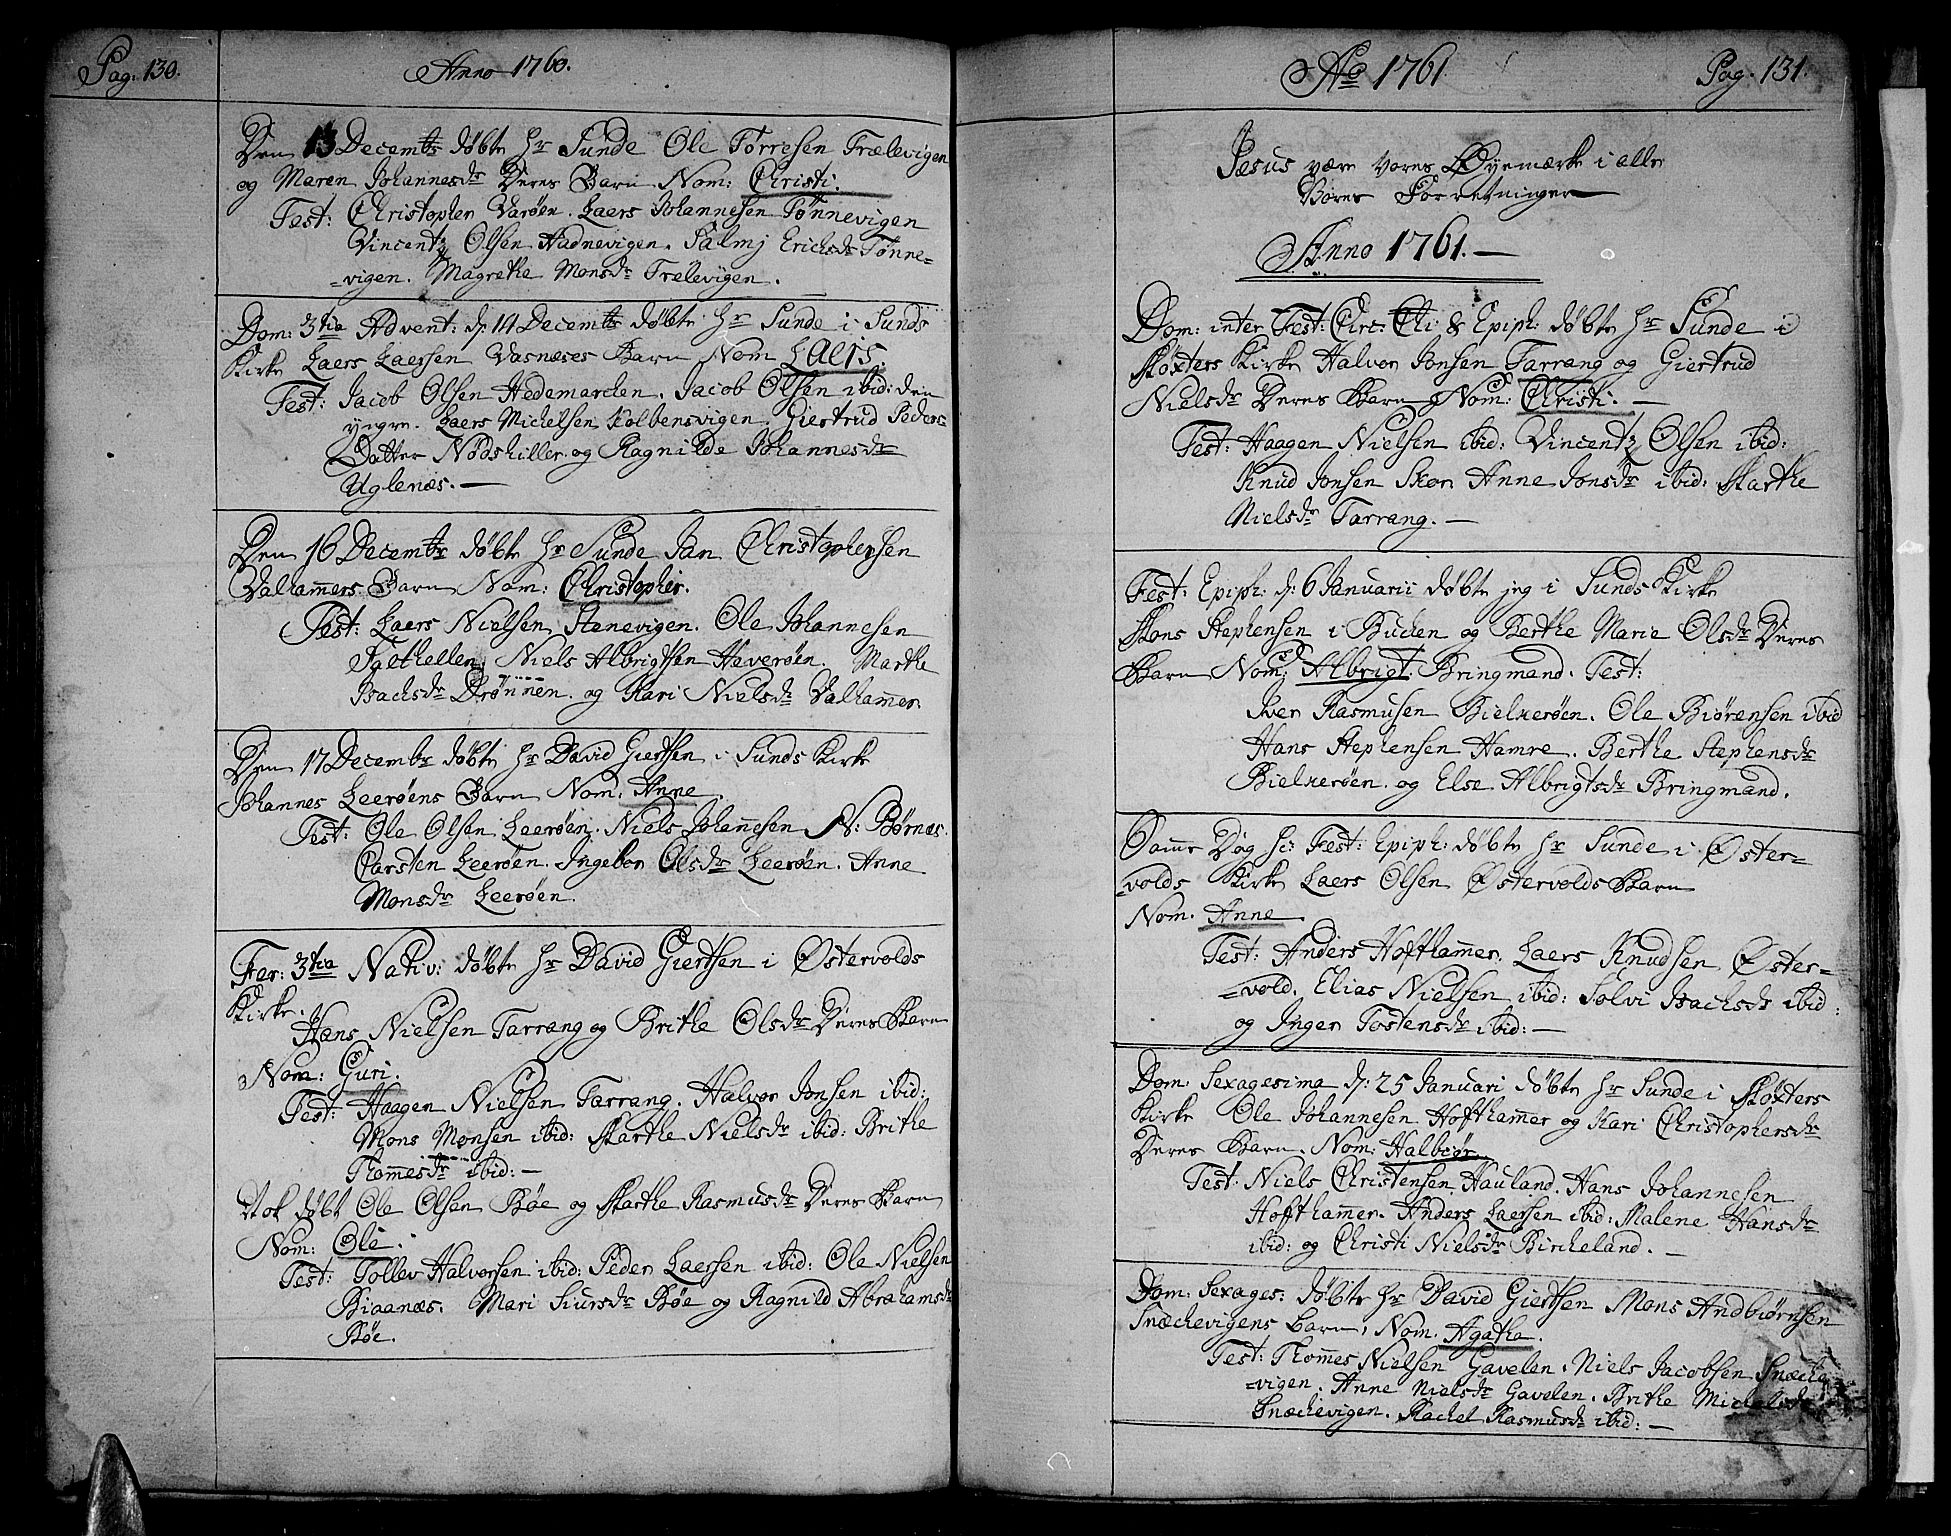 Pag: 130.
Anno 1760.
Den 13 Decembr døbte Hr Sunde Ole Torresen Trælevigen
og Maren Johannesdr Deres Barn Nom: Christi.
Test: Christopher Varøen. Laers Johannesen Tønnevigen
Vincentz Olsen Hadnevigen. Salmj Erichsdr Tønne=
=vigen. Magrethe Monsdr Trælevigen.
Dom: 3tia Advent: d: 14 Decembr døbte Hr Sunde i Sunds
Kirke Laers Laersen Vasnæses Barn Nom Laers.
Test: Jacob Olsen Hedemarchen. Jacob Olsen ibid: den
yngre. Laers Michelsen Kolbensvigen. Giertrud Peders
Datter Nødshiller og Ragnilde Johannesdr
Uglenæs. —
Den 16 Decembr døbte Hr Sunde Jan Christophersen
Valhamers Barn Nom: Christopher.
Test: Laers Nielsen Stenevigen. Ole Johannesen
Niels Albrigtsen Haverøen. Marthe
Isachsdr Drønnen. og Kari Nielsdr Valhamer.
Den 17 Decembr døbte Hr David Giertsen i Sunds Kirke
Johannes Leerøens Barn Nom: Anne.
Test: Ole Olsen Leerøen. Niels Johannesen N: Børnæs.
Carsten Leerøen. Ingebor Olsdr Leerøen. Anne
Monsdr Leerøen.
Fer: 3tia Nativ: døbte Hr David Giertsen i Østervolds
Kirke.
Hans Nielsen Tarrang og Brithe Olsdr Deres Barn
Nom: Guri.
Test: Haagen Nielsen Tarrang. Halvor Jonsen ibid:
Mons Monsen ibid: Marthe Nielsdr ibid: Brithe
Thomesdr ibid: —
Itok døbt Ole Olsen Bøe og Marthe Rasmusdr Deres Barn
Nom: Ole.
Test: Tollev Halvorsen ibid: Peder Laersen ibid: Ole Nielsen
Biaanæs. Mari Siursdr Bøe og Ragnild Abrahamsdr
Bøe.
Ao 1761
Pag. 131.
Jæsus være vores Øyemærke i alle
Vores Forretninger
Anno 1761. —
Dom: inter Fest: Circ: Chi & Epiph: døbte Hr Sunde i
Møxters Kirke Halvor Jonsen Tarrang og Giertrud
Nielsdr Deres Barn Nom: Christi. —
Test: Haagen Nielsen ibid: Vincentz Olsen ibid:
Knud Jonsen Skor Anne Jonsdr ibid: Marthe
Nielsdr Tarrang. —
Fest: Epiph: d: 6 Januarii døbte jeg i Sunds Kirke
Mons Stephensen i Buchen og Berthe Marie Olsdr Deres
Barn Nom: Albrigt Bringmand. Test:
Iver Rasmusen Bielkerøen. Ole Biørensen ibid
Hans Stephensen Hamre. Berthe Stephensdr
Bielkerøen. og Else Albrigtsdr Bringmand.
Samme Dag sc: Fest: Epiph: døbte Hr Sunde i Øster=
=volds Kirke Laers Olsen Østervolds Barn
Nom. Anne
Test: Anders Hofthamer. Laers Knudsen Øster=
=vold. Elias Nielsen ibid: Solvi Isachsdr ibid:
og Inger Tostensdr ibid: —
Dom: Sexagesima d: 25 Januari døbte Hr Sunde i Møxters
Kirke Ole Johannesen Hofthamer og Kari Christophersdr
Deres Barn. Nom: Halbiør.
Test: Niels Christensen Hauland. Hans Johannesen
Hofthamer. Anders Laersen ibid: Malene Hansdr
ibid: og Christi Nielsdr Bircheland. —
Dom: Sexages: døbte Hr David Giertsen Mons Andbiørnsen
Snæchevigens Barn, Nom: Agatha.
Test: Thomes Nielsen Gavelen. Niels Jacobsen Snæche
=vigen. Anne Nielsdr Gavelen. Brithe Michelsdr
Snæchevigen. Rachel Rasmusdr ibid: —